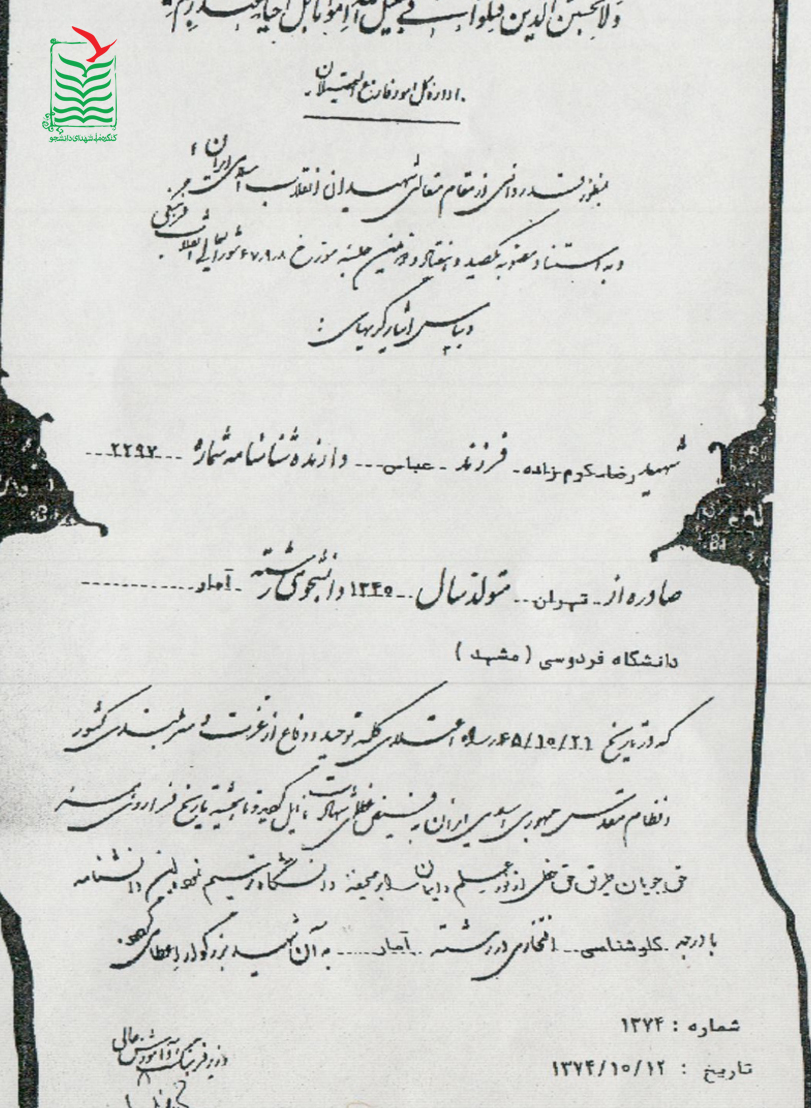 ولا تحسبن الذین قتلوا فی سبیل الله امواتا بل احیاء عند ربهم
کنگره ملی شهدای دانشجو
اداره کل امور فارغ التحصیلان
بمنظور قدردانی از مقام متعالی شهیدان انقلاب اسلامی ایران
و به استناد مصوبه یکصد و هفتاد و دومین جلسه مورخ ۶۷٫۹٫۸ شورایعالی انقلاب فرهنگی
و بپاس ایثارگریهای :
شهید رضا کرم زاده فرزند عباس دارنده شناسنامه شماره ۲۲۹۷
صادره از تهران متولد سال ۱۳۴۰ دانشجوی رشته آمار
دانشگاه فردوسی ( مشهد )
که در تاریخ ۶۵/۱۰/۲۱ در راه اعتلای کلمه توحید و دفاع از عزت و سربلندی کشور
و نظام مقدس جمهوری اسلامی ایران به فیض عظمای شهادت نایل گردید و تا همیشه تاریخ فرا روی همه
حق جویان طریق حق خطی از نور علم و ایمان بر صحیفه دانشگاه ترسیم نمود این دانشنامه
با درجه کارشناسی افتخاری در رشته آمار به آن شهید بزرگوار اعطا می گردد
شماره : ۱۳۷۴
تاریخ : ۱۳۷۴/۱۰/۱۲
وزیر فرهنگ و آموزش عالی